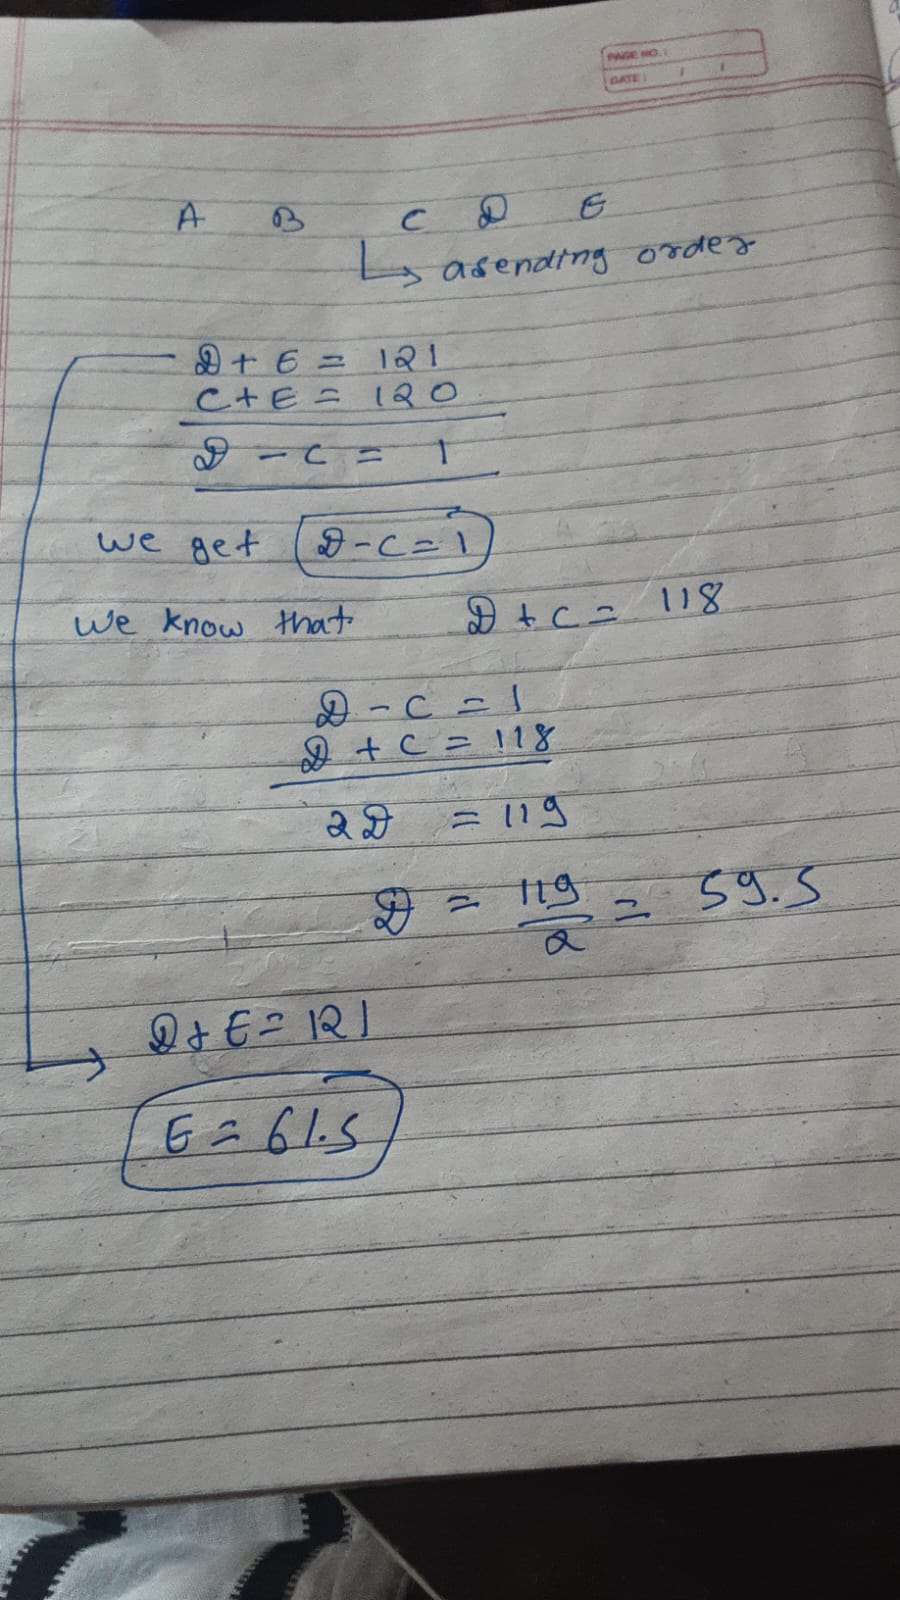 PAGE NO.:
DATE: / /
A B C D E
↳ asending order
D + E = 121
C + E = 120
D - C = 1
We get D - C = 1
We know that D + C = 118
D - C = 1
D + C = 118
2D = 119
D = 119/2 = 59.5
D + E = 121
E = 61.5